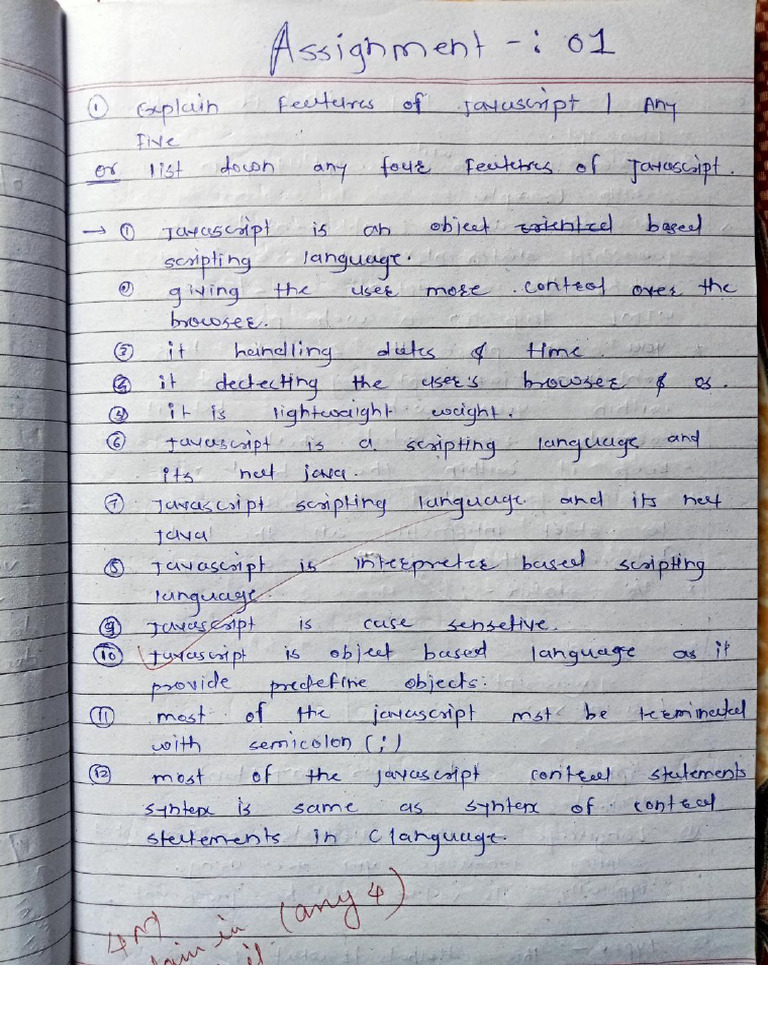 Assignment -: 01
① Explain features of Javascript / Any
five
or list down any four features of Javascript.
→ ① Javascript is an object oriented based
scripting language.
② giving the user more control over the
browser.
③ it handling dates & time.
④ it dectecting the user's browser & os.
⑤ it is lightwaight weight.
⑥ Javascript is a scripting language and
its not java.
⑦ Javascript scripting language and its not
java
⑧ Javascript is interpreter based scripting
language.
⑨ Javascript is case sensetive.
⑩ Javascript is object based language as it
provide predefine objects.
⑪ most of the javascript mst be terminated
with semicolon (;)
⑫ most of the javascript control statements
syntex is same as syntex of control
statements in C language.
4M
in (any 4)